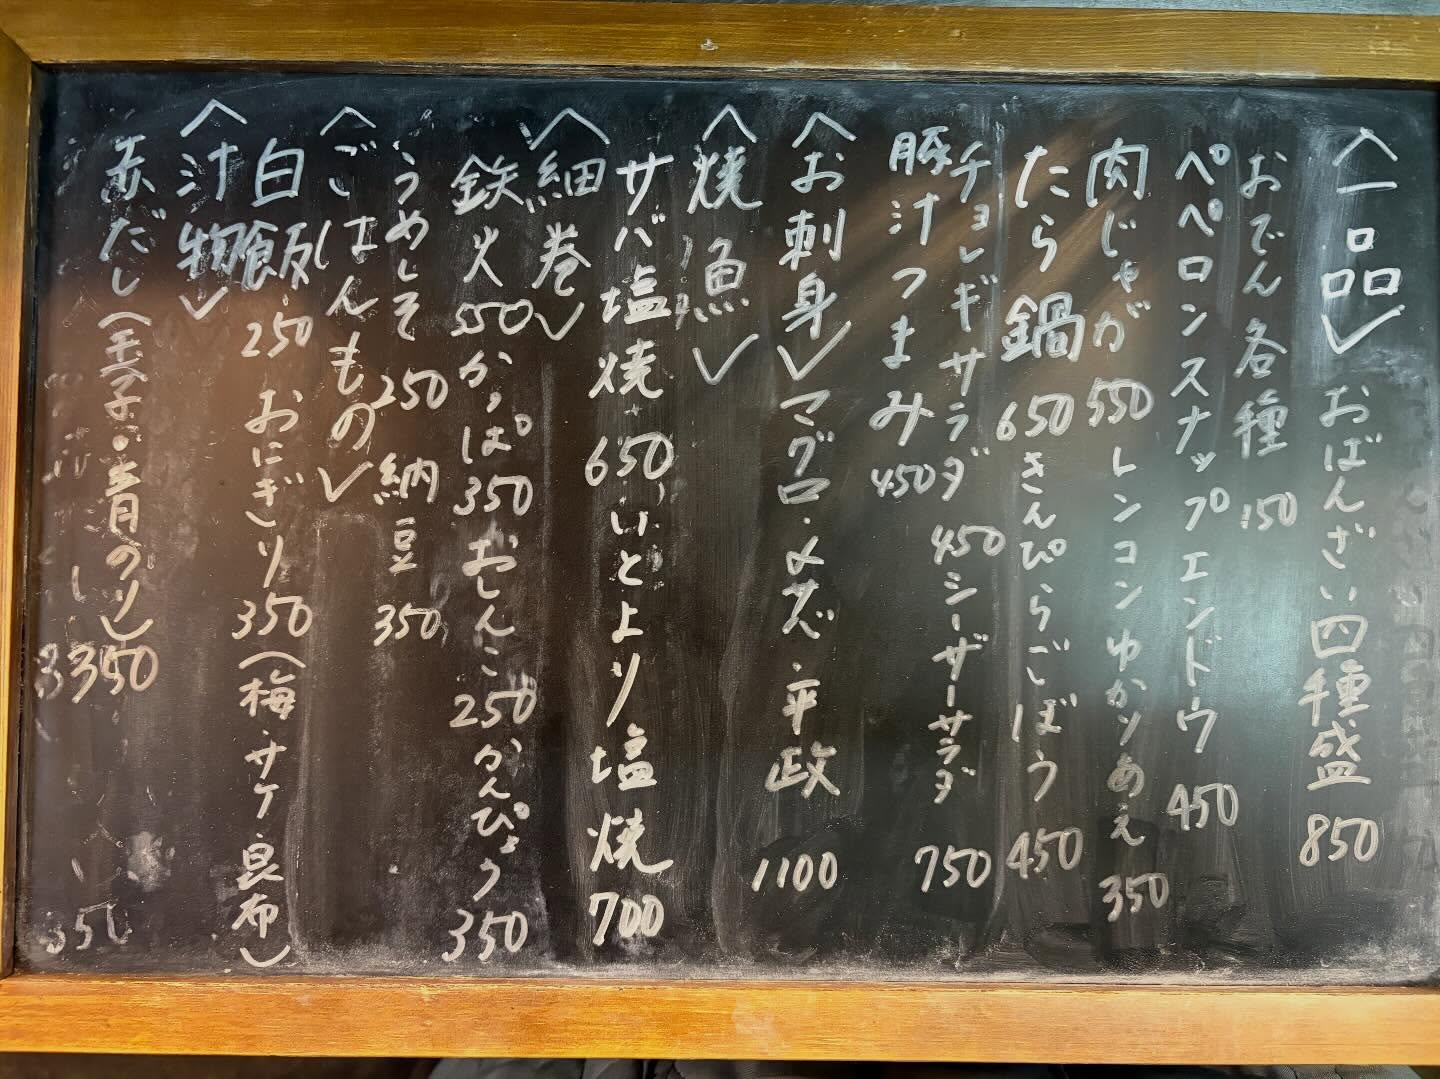 〈一品〉おばんざい四種盛 850
おでん各種 150
ペペロンスナップエンドウ 450
肉じゃが 550 レンコンゆかりあえ 350
たら鍋 650 きんぴらごぼう 450
チョレギサラダ 450 シーザーサラダ 750
豚汁つまみ 450
〈お刺身〉マグロ・〆さば・平政 1100
〈焼魚〉
サバ塩焼 650 いとより塩焼 700
〈細巻〉
鉄火 550 かっぱ 350 おしんこ 250 かんぴょう 350
うめしそ 250 納豆 350
〈ごはんもの〉
白飯 250 おにぎり 350 (梅・サケ・昆布)
〈汁物〉
赤だし(玉子・青のり) 350